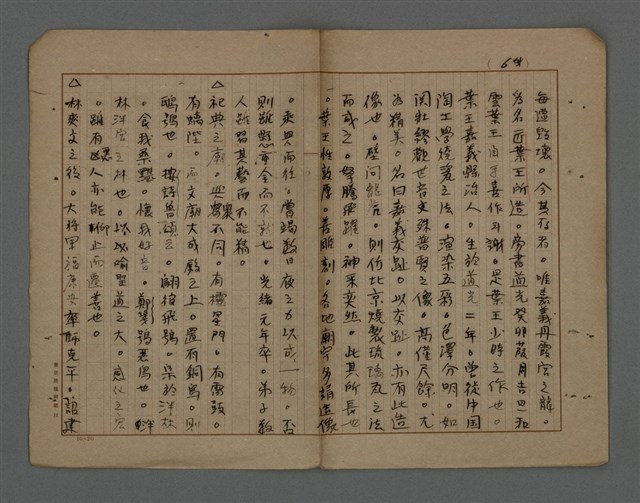 (64)
每遭毀壞。今其存者。唯嘉義丹霞宮之牆。
為名匠葉王所造。旁書道光癸卯葭月吉四和
雲葉王自手喜作耳謝。是葉王少時之作也。
葉王嘉義縣治人。生於道光二年。曾從中國
陶工學燒瓷之法。渲染五彩。色澤分明。如
關壯繆觀世音文殊普賢之像。高僅尺餘。尤
為精美。名曰嘉義交趾。以交趾。亦有此造
像也。壁間 則仿北京燒製琉璃瓦之法
而或之。騰躍。神采奕然。此其所長也
。葉王性敦厚。善雕刻。各地廟宇多請造像
。乘興而往。嘗竭數日夜之力以成一物。否
則雖懸重金而不就也。光緒元年卒。弟子數
人雖習其藝而不能稱。
△祀典之廟。與叢祠不同。有櫺星門。有
有蟠陛。而文廟大成殿之上。置有銅鳥。則
鴟鴞也。按詩魯頌。翩彼飛鴞。集於泮林
。食我桑黮。懷我好音。鄭箋鴞惡鳥也。泮
林泮宮之林也。以喻聖道之大。感化之宏
。雖有惡人亦能 止而遷善也。
△林爽文之役。大將軍福康安率師克平。詔建